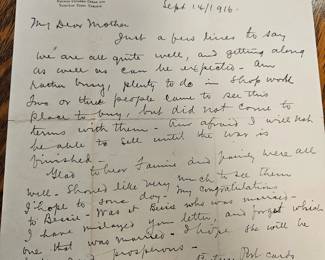 Sept 14/1916.
My Dear Mother
Just a few lines to say
we are all quite well, and getting along
as well as can be expected - am
rather busy, plenty to do in shop work
Two or three people came to see this
place to buy, but did not come to
terms with them - Am afraid I will not
be able to sell until the war is
finished -
Glad to hear Fannie and family were all
well - Should like very much to see them
I hope to some day - My congratulations
to Bessie - Was it Bessie who was married -
I have mislayed your letter, and forget which
one that was married - I hope she will be
and prosperous -
Post cards